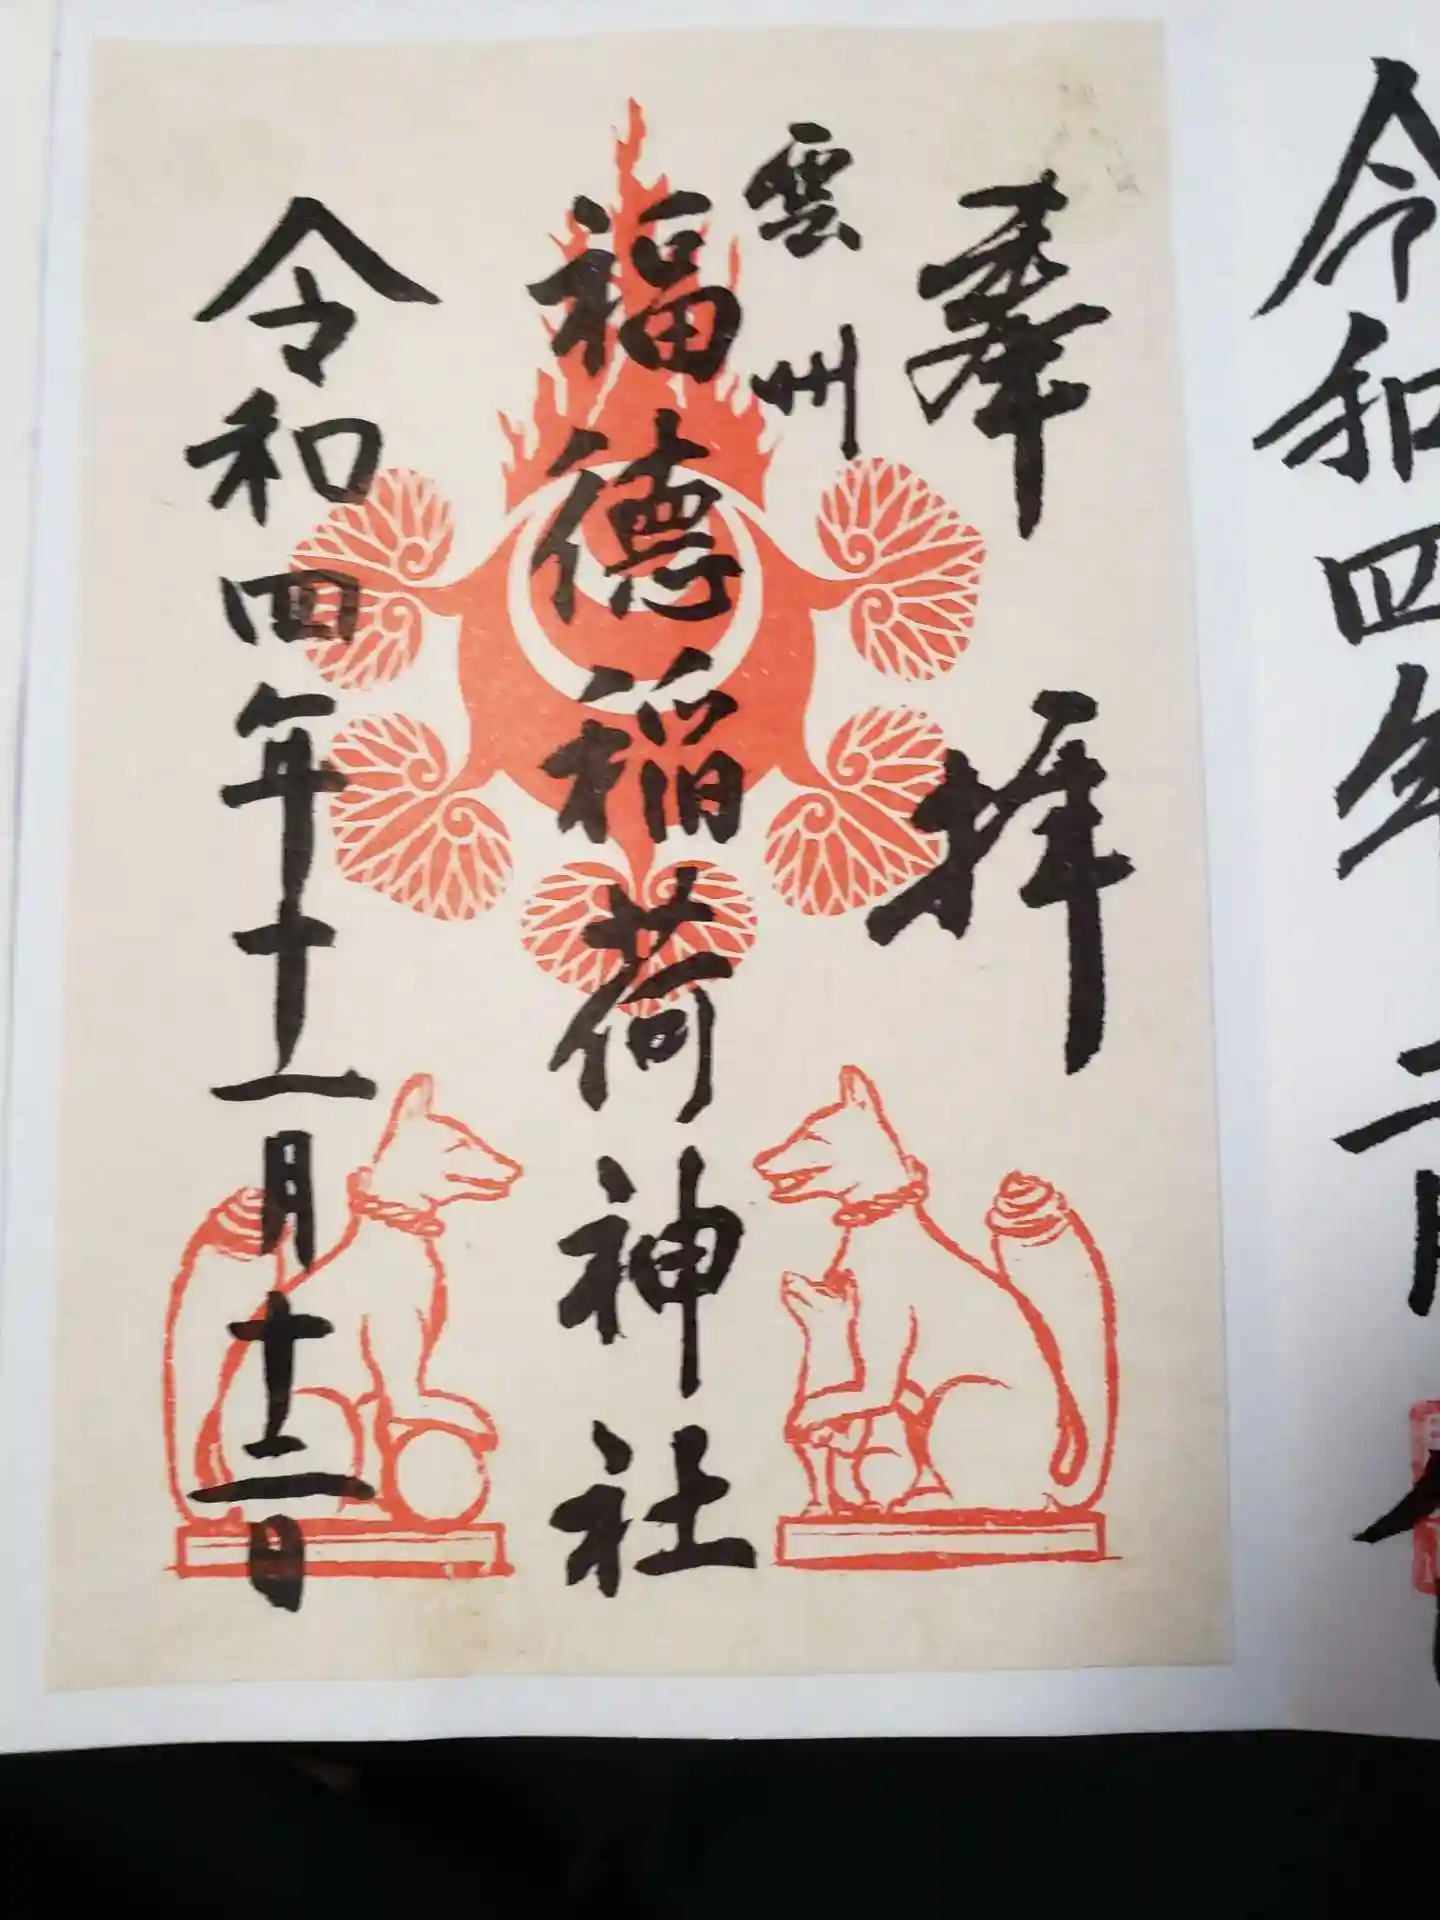 奉拝
雲州
福徳稲荷神社
令和四年十一月十二日
令和四年
二月